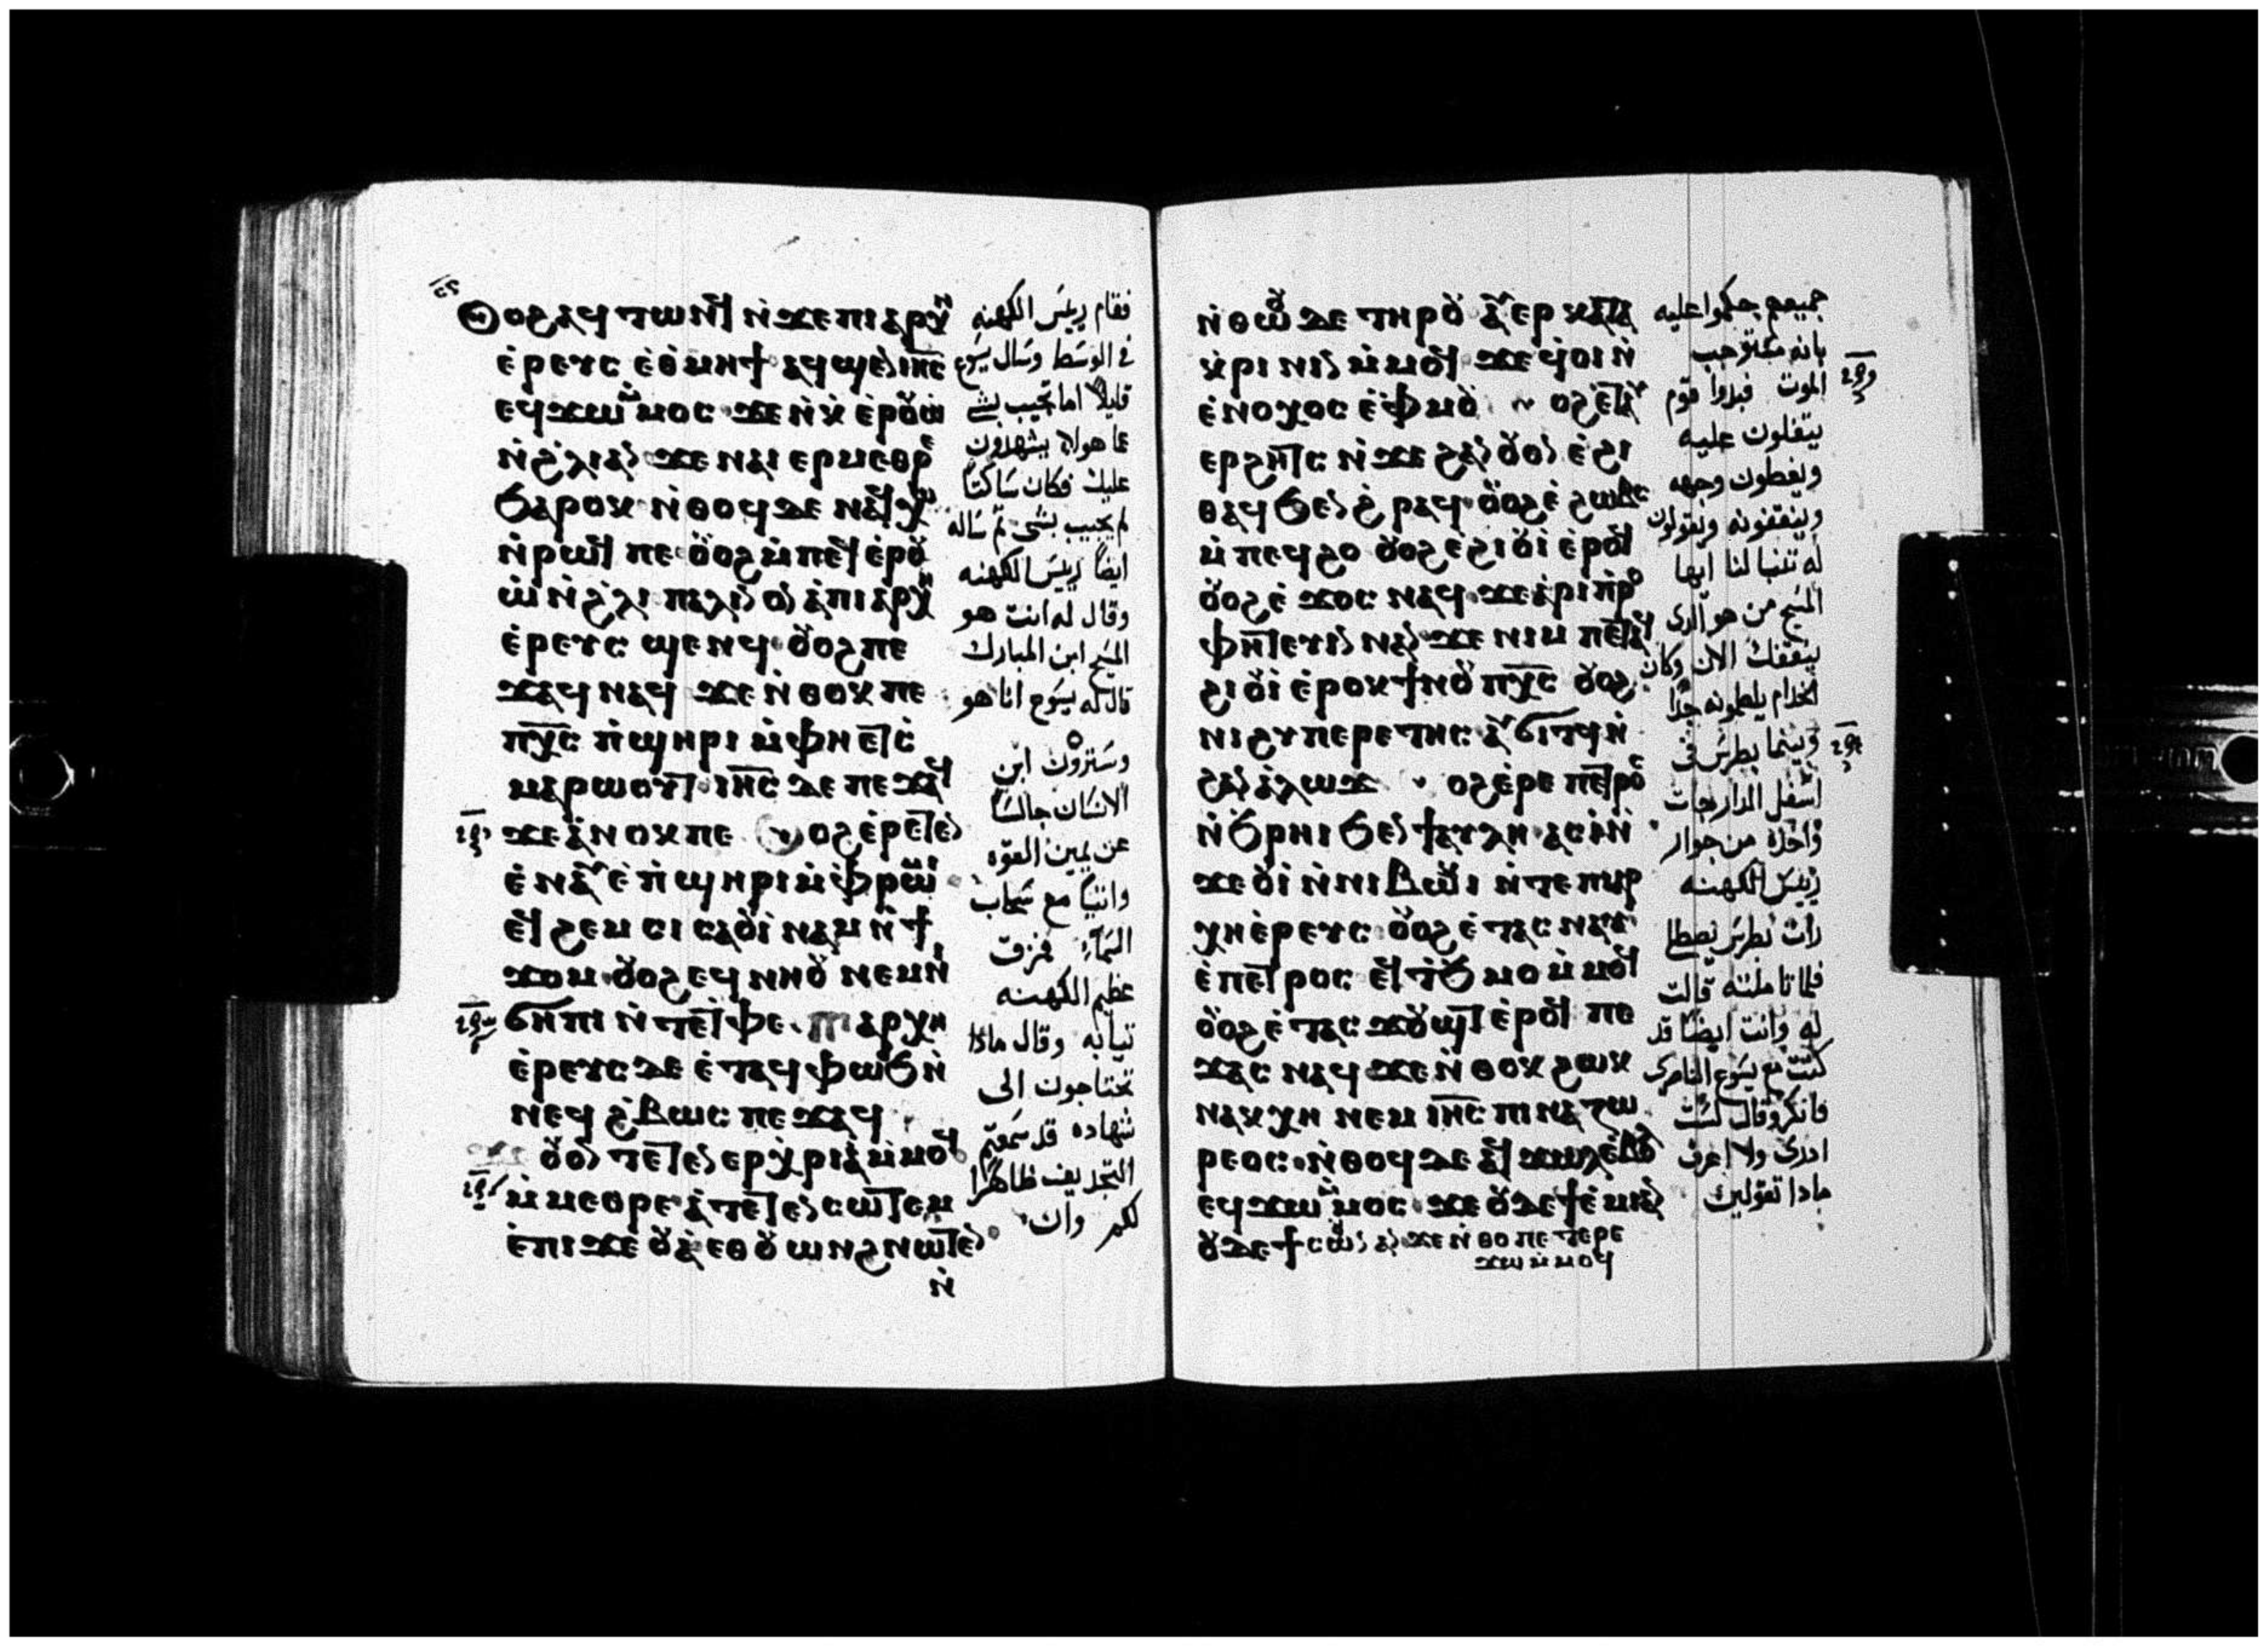 ⲟϩⲁϥ ⲧⲱⲛϥ ⲛ̀ϫⲉ ⲡⲓⲁⲣⲭⲏ
ⲉ̀ⲣⲉⲩⲥ ⲉ̀ⲑⲙⲏϯ ⲁϥϣⲉⲛ ⲓⲏ̅ⲥ̅
ⲉϥϫⲱ ⲙ̀ⲙⲟⲥ ϫⲉ ⲛ̀ⲭ ⲉ̀ⲣⲟⲩⲱ
ⲛ̀ϩ̀ⲗⲓ ⲁⲛ ϫⲉ ⲛⲁⲓ ⲉⲣⲙⲉⲑⲣⲉ
ϧⲁⲣⲟⲕ ⲛ̀ⲑⲟϥ ⲇⲉ ⲛⲁϥⲭⲱ
ⲛ̀ⲣⲱϥ ⲡⲉ ⲟⲩⲟϩ ⲙ̀ⲡⲉϥⲉ̀ⲣⲟⲩ
ⲱ̀ ⲛ̀ϩ̀ⲗⲓ ⲡⲁⲗⲓⲛ ⲟⲛ ⲁ̀ⲡⲓⲁⲣⲭⲏ
ⲉ̀ⲣⲉⲩⲥ ϣⲉⲛϥ ⲟⲩⲟϩ ⲡⲉ
ϫⲁϥ ⲛⲁϥ ϫⲉ ⲛ̀ⲑⲟⲕ ⲡⲉ
ⲡⲭ̅ⲥ̅ ⲡ̀ϣⲏⲣⲓ ⲙ̀ⲫⲏ ⲉⲧⲥ̀
ⲙⲁⲣⲱⲟⲩⲧ ⲓⲏ̅ⲥ̅ ⲇⲉ ⲡⲉϫⲁϥ
ϫⲉ ⲁ̀ⲛⲟⲕ ⲡⲉ ⲟϩ ⲉ̀ⲣⲉⲧⲉⲛ
ⲉ̀ⲛⲁⲩ ⲉ̀ⲡ̀ϣⲏⲣⲓ ⲙ̀ⲫⲣⲱⲙⲓ
ⲉϥϩⲉⲙⲥⲓ ⲥⲁⲟⲩⲓ̀ⲛⲁⲙ ⲛ̀ϯ
ϫⲟⲙ ⲟⲩⲟϩ ⲉϥⲛⲏⲟⲩ ⲛⲉⲙ ⲛⲓ
ϭⲏⲡⲓ ⲛ̀ⲧⲉ ⲧ̀ⲫⲉ ⲡⲓⲁⲣⲭⲏ
ⲉ̀ⲣⲉⲩⲥ ⲇⲉ ⲉ̀ⲧⲁϥⲫⲱϧ ⲛ̀
ⲛⲉϥϩ̀ⲃⲱⲥ ⲡⲉϫⲁϥ
ⲟⲩⲟⲛ ⲧⲉⲧⲉⲛ ⲉⲣⲭ̀ⲣⲓⲁ̀ ⲙ̀ⲙⲟϥ
ⲙ̀ⲙⲉⲑⲣⲉ ⲁ̀ⲧⲉⲧⲉⲛⲥⲱⲧⲉⲙ
ⲉ̀ⲡⲓϫⲉⲟⲩⲁ̀ ⲉⲑⲟⲩⲱⲛϩ ⲛⲱⲧⲉⲛ
ⲛ̀
فقام رييس الكهنه
في الوسط وسال يسوع
قايلاً اما تجيب بشي
عما هولاء يشهدون
عليك فكان ساكتاً
لم يجيب بشي ثم ساله
ايضاً رييس الكهنه
وقال له انت هو
المسيح ابن المبارك
قال له يسوع انا هو
وسترون ابن
الانسان جالساً
عن يمين القوه
واتياً مع سحاب
السماء فمزق
عظيم الكهنه
ثيابه وقال ماذا
تحتاجون الى
شهاده قد سمعتم
التجديف ظاهرًا
لكم وان
ⲛ̀ⲑⲱⲟⲩ ⲇⲉ ⲧⲏⲣⲟⲩ ⲁⲩⲉⲣⲕⲁⲧⲁ
ⲕ̀ⲣⲓⲛⲓⲛ ⲙ̀ⲙⲟϥ ϫⲉ ϥ̀ⲟⲓ ⲛ̀
ⲉ̀ⲛⲟⲭⲟⲥ ⲉ̀ⲫ̀ⲙⲟⲩ ⲟϩ ⲉⲧⲁⲩ
ⲉⲣϩⲏⲧⲥ ⲛ̀ϫⲉ ϩⲁⲛ ⲟⲩⲟⲛ ⲉ̀ϩⲓ
ⲑⲁϥ ϧⲉⲛ ϩ̀ⲣⲁϥ ⲟⲩⲟϩ ⲉ̀ϩⲱⲃⲥ
ⲙ̀ⲡⲉϥϩⲟ ⲟⲩⲟϩ ⲉ̀ϩⲓⲟⲩⲓ̀ ⲉ̀ⲣⲟϥ
ⲟⲩⲟϩ ⲉ̀ϫⲟⲥ ⲛⲁϥ ϫⲉ ⲁ̀ⲣⲓⲡ̀ⲣⲟ
ⲫⲏⲧⲉⲩⲓⲛ ⲛⲁⲛ ϫⲉ ⲛⲓⲙ ⲡⲉⲧⲁϥ
ϩⲓⲟⲩⲓ̀ ⲉ̀ⲣⲟⲕ ϯⲛⲟⲩ ⲡⲭ̅ⲥ̅ ⲟⲩⲟϩ
ⲛⲓϩⲩⲡⲉⲣⲉⲧⲏⲥ ⲁⲩϭⲓⲧϥ ⲛ̀
ϩⲁⲛ ⲁ̀ⲗⲱϫ ⲟϩ ⲉ̀ⲣⲉ ⲡⲉⲧⲣⲟ
ⲛ̀ϧⲣⲏⲓ ϧⲉⲛ ϯⲁⲩⲗⲏ ⲁⲥⲓ̀ ⲛ̀
ϫⲉ ⲟⲩⲓ̀ ⲛ̀ⲛⲓⲃⲱⲕⲓ ⲛ̀ⲧⲉ ⲡⲓⲁⲣ
ⲭⲏⲉ̀ⲣⲉⲩⲥ ⲟⲩⲟϩ ⲉ̀ⲧⲁⲥⲛⲁⲩ
ⲉ̀ⲡⲉⲧⲣⲟⲥ ⲉϥϧ̀ⲙⲟⲙ ⲙ̀ⲙⲟϥ
ⲟⲩⲟϩ ⲉ̀ⲧⲁⲥϫⲟⲩϣⲧ ⲉ̀ⲣⲟϥ ⲡⲉ
ϫⲁⲥ ⲛⲁϥ ϫⲉ ⲛ̀ⲑⲟⲕ ϩⲱⲕ
ⲛⲁⲕⲭⲏ ⲛⲉⲙ ⲓⲏ̅ⲥ̅ ⲡⲓⲛⲁⲍⲱ
ⲣⲉⲟⲥ ⲛ̀ⲑⲟϥ ⲇⲉ ⲁϥϫⲱⲗ ⲉ̀ⲃⲟⲗ
ⲉϥϫⲱ ⲙ̀ⲙⲟⲥ ϫⲉ ⲟⲩⲇⲉ ϯⲉ̀ⲙⲓ ⲁⲛ
ⲟⲩⲇⲉ ϯⲥⲱⲟⲩⲛ ⲁⲛ ϫⲉ ⲛ̀ⲑⲟ ⲡⲉ ⲧⲉⲣⲉ
ϫⲱ ⲙ̀ⲙⲟϥ
جميعهم حكموا عليه
بانه مستوجب
الموت فبدوا قوم
يتفلون عليه
ويغطون وجهه
وينقفونه ويقولون
له تنبا لنا ايها
المسيح من هو الذى
ينقفك الان وكان
الخدام يلطمونه جدًا
وبينما بطرس في
اسفل الدار جات
واحده من جوار
رييس الكهنه
رات بطرس يصطلي
فلما تاملته قالت
له وانت ايضا قد
كنت مع يسوع الناصرى
فانكر وقال لست
ادرى ولا اعرف
ماذا تقولين